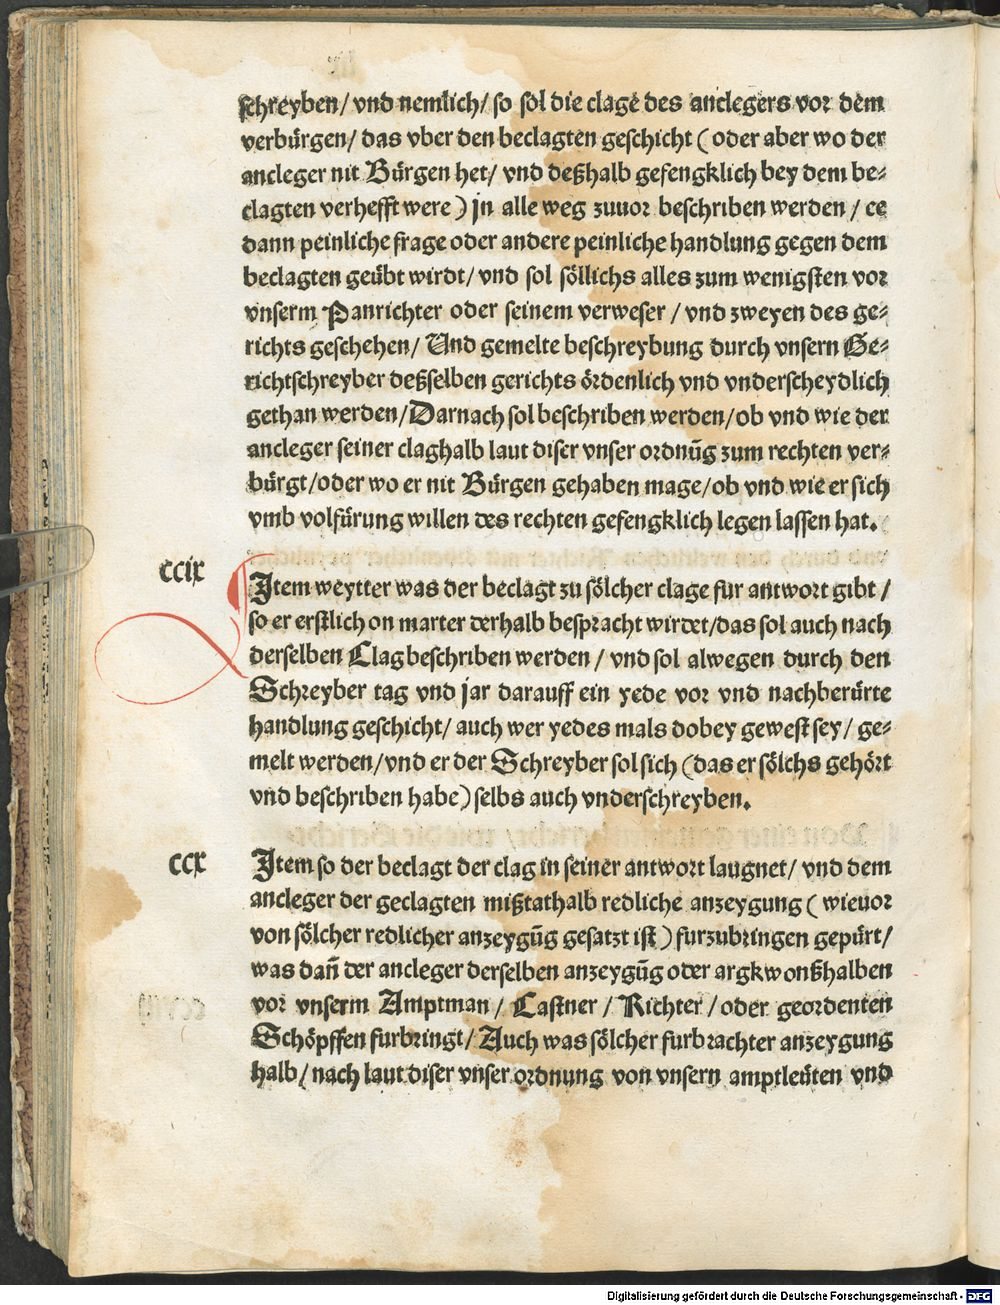 schreyben/ vnd nemlich/ so sol die clage des anclegers vor dem
verbürgen/ das vber den beclagten geschicht ( oder aber wo der
ancleger nit Bürgen het/ vnd deßhalb gefengklich bey dem be⸗
clagten verhefft were ) jn alle weg zuuor beschriben werden / ee
dann peinliche frage oder andere peinliche handlung gegen dem
beclagten geübt wirdt/ vnd sol söllichs alles zum wenigsten vor
vnserm Panrichter oder seinem verweser / vnd zweyen des ge⸗
richts geschehen/ Vnd gemelte beschreybung durch vnsern Ge⸗
richtschreyber deßselben gerichts ördenlich vnd vnderscheydlich
gethan werden/ Darnach sol beschriben werden/ ob vnd wie der
ancleger seiner claghalb laut diser vnser ordnūg zum rechten ver⸗
bürgt/ oder wo er nit Bürgen gehaben mage/ ob vnd wie er sich
vmb volfürung willen des rechten gefengklich legen lassen hat.
ccix
Item weytter was der beclagt zu sölcher clage fur antwort gibt /
so er erstlich on marter derhalb bespracht wirdet/ das sol auch nach
derselben Clag beschriben werden / vnd sol alwegen durch den
Schreyber tag vnd jar darauff ein yede vor vnd nachberürte
handlung geschicht/ auch wer yedes mals dobey gewest sey/ ge⸗
melt werden/ vnd er der Schreyber sol sich ( das er sölchs gehört
vnd beschriben habe ) selbs auch vnderschreyben.
ccx
Item so der beclagt der clag in seiner antwort laugnet/ vnd dem
ancleger der geclagten mißtathalb redliche anzeygung ( wieuor
von sölcher redlicher anzeygūg gesatzt ist ) furzubringen gepürt/
was dañ der ancleger derselben anzeygūg oder argkwonßhalben
vor vnserm Amptman / Castner / Richter / oder geordenten
Schöpffen furbringt/ Auch was sölcher furbrachter anzeygung
halb/ nach laut diser vnser ordnung von vnsern amptleüten vnd
Digitalisierung gefördert durch die Deutsche Forschungsgemeinschaft - DFG